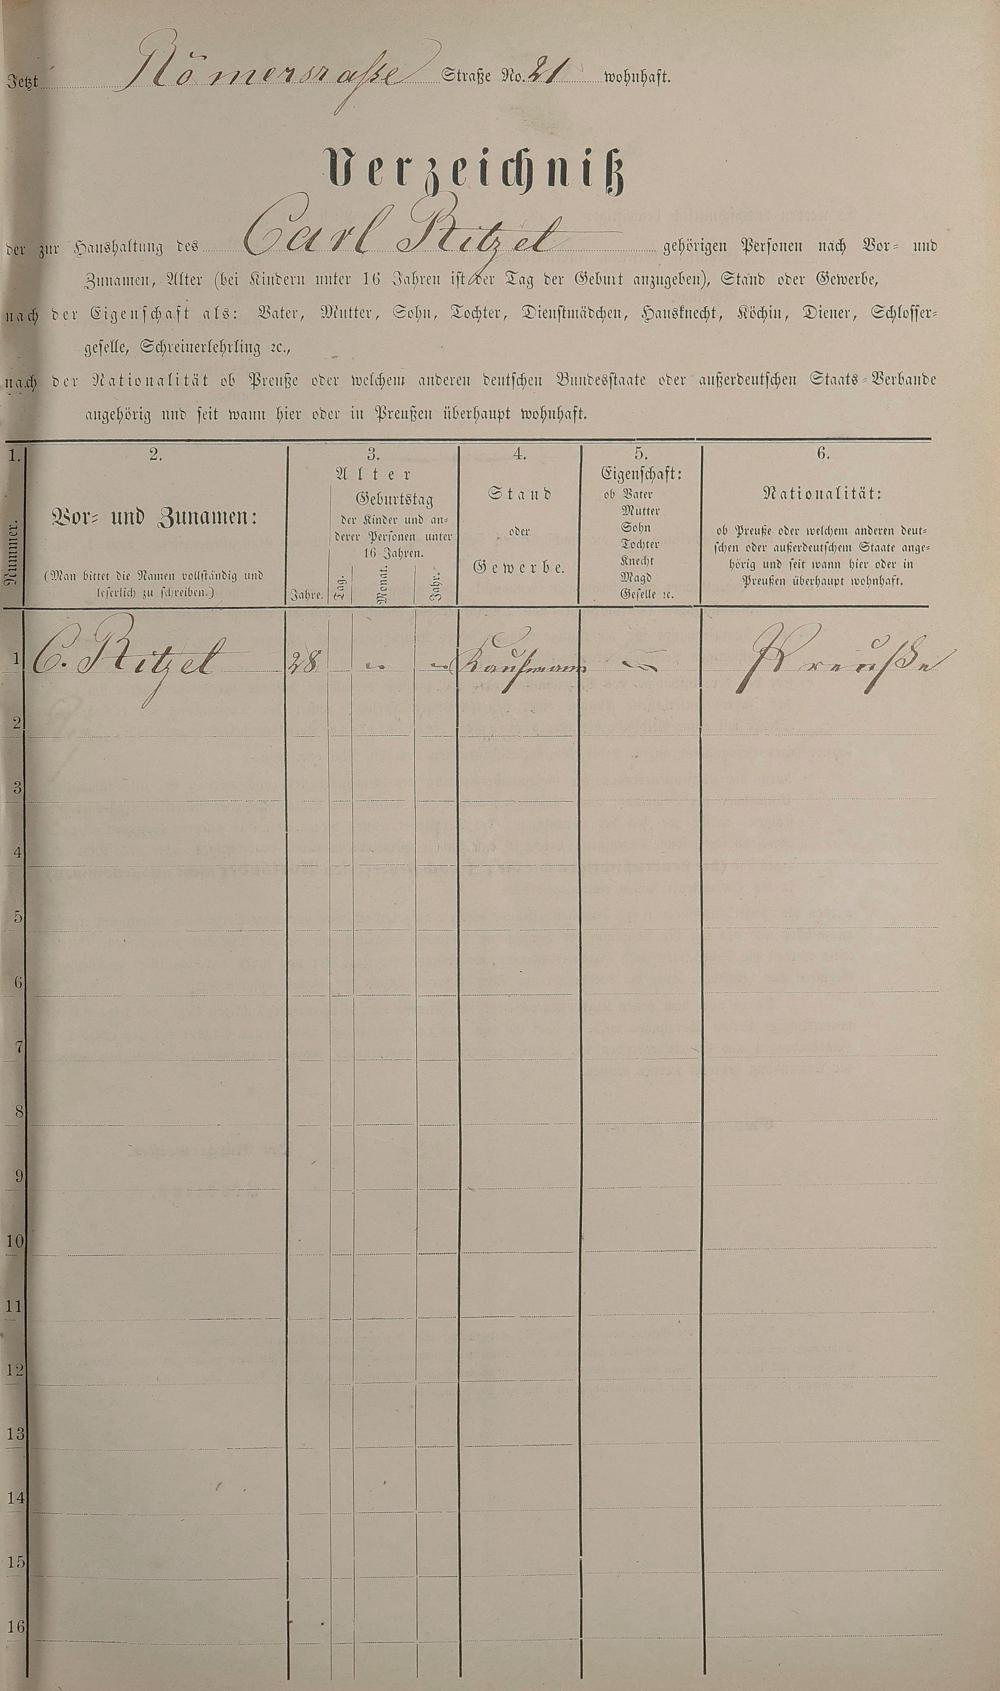 Jetzt Römersraße Straße No. 21 wohnhaft.
Verzeichniß
der zur Haushaltung des Carl Ritzel gehörigen Personen nach Vor- und
Zunamen, Alter (bei Kindern unter 16 Jahren ist der Tag der Geburt anzugeben), Stand oder Gewerbe,
nach der Eigenschaft als: Vater, Mutter, Sohn, Tochter, Dienstmädchen, Hausknecht, Köchin, Diener, Schlosser-
geselle, Schreinerlehrling ꝛc.,
nach der Nationalität ob Preuße oder welchem anderen deutschen Bundesstaate oder außerdeutschen Staats-Verbande
angehörig und seit wann hier oder in Preußen überhaupt wohnhaft.
1. 2. 3. 4. 5. 6.
Nummer.
Vor- und Zunamen:
(Man bittet die Namen vollständig und
leserlich zu schreiben.)
Alter
Jahre.
Geburtstag
der Kinder und an-
derer Personen unter
16 Jahren.
Tag. Monat. Jahr.
Stand
oder
Gewerbe.
Eigenschaft:
ob Vater
Mutter
Sohn
Tochter
Knecht
Magd
Geselle ꝛc.
Nationalität:
ob Preuße oder welchem anderen deut-
schen oder außerdeutschem Staate ange-
hörig und seit wann hier oder in
Preußen überhaupt wohnhaft.
1 C. Ritzel 28 " " Kaufmann — Preuße
2
3
4
5
6
7
8
9
10
11
12
13
14
15
16